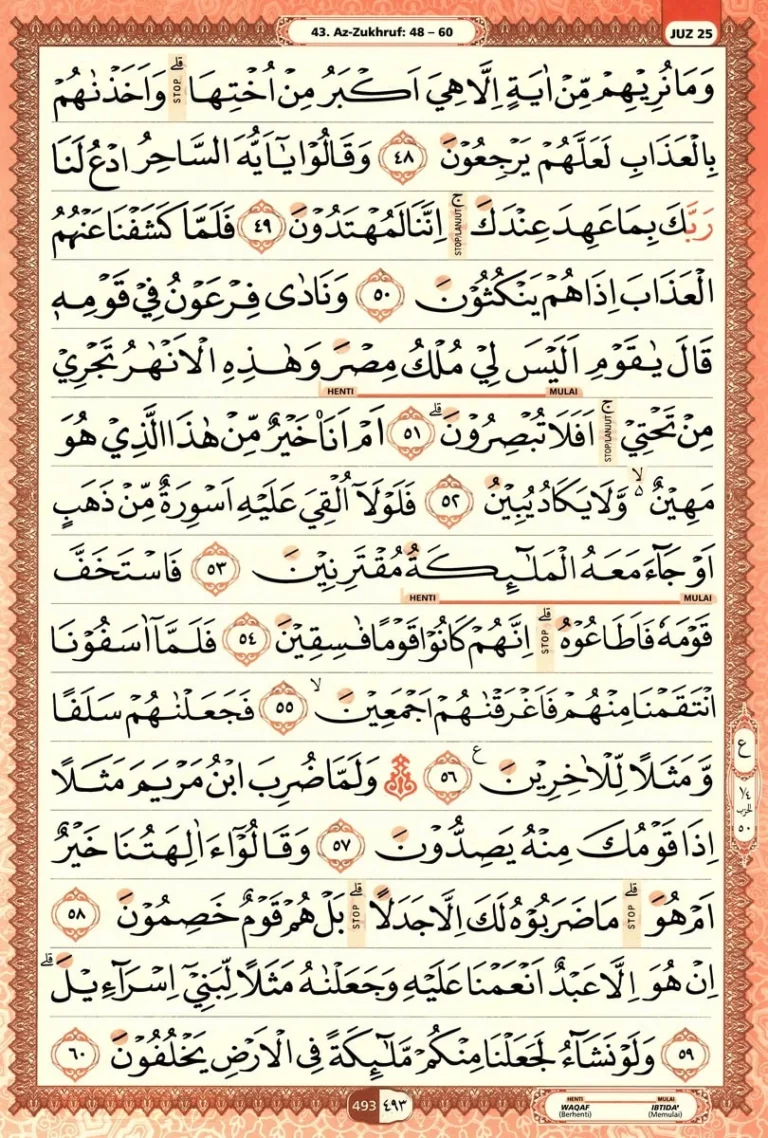 43. Az-Zukhruf: 48 – 60
JUZ 25
وَمَا نُرِيْهِمْ مِّنْ اٰيَةٍ اِلَّا هِيَ اَكْبَرُ مِنْ اُخْتِهَاۗ STOP وَاَخَذْنٰهُمْ
بِالْعَذَابِ لَعَلَّهُمْ يَرْجِعُوْنَ ٤٨ وَقَالُوْا يٰٓاَيُّهَ السَّاحِرُ ادْعُ لَنَا
رَبَّكَ بِمَا عَهِدَ عِنْدَكَۚ STOP/LANJUT اِنَّنَا لَمُهْتَدُوْنَ ٤٩ فَلَمَّا كَشَفْنَا عَنْهُمُ
الْعَذَابَ اِذَا هُمْ يَنْكُثُوْنَ ٥٠ وَنَادٰى فِرْعَوْنُ فِيْ قَوْمِهٖ
قَالَ يٰقَوْمِ اَلَيْسَ لِيْ مُلْكُ مِصْرَ وَهٰذِهِ الْاَنْهٰرُ تَجْرِيْ
MULAI HENTI
مِنْ تَحْتِيْۚ STOP/LANJUT اَفَلَا تُبْصِرُوْنَۗ ٥١ اَمْ اَنَا۠ خَيْرٌ مِّنْ هٰذَا الَّذِيْ هُوَ
مَهِيْنٌ ەۙ وَّلَا يَكَادُ يُبِيْنُ ٥٢ فَلَوْلَآ اُلْقِيَ عَلَيْهِ اَسْوِرَةٌ مِّنْ ذَهَبٍ
اَوْ جَاۤءَ مَعَهُ الْمَلٰۤىِٕكَةُ مُقْتَرِنِيْنَ ٥٣ فَاسْتَخَفَّ
MULAI HENTI
قَوْمَهٗ فَاَطَاعُوْهُۗ STOP اِنَّهُمْ كَانُوْا قَوْمًا فٰسِقِيْنَ ٥٤ فَلَمَّآ اٰسَفُوْنَا
انْتَقَمْنَا مِنْهُمْ فَاَغْرَقْنٰهُمْ اَجْمَعِيْنَۙ ٥٥ فَجَعَلْنٰهُمْ سَلَفًا
وَّمَثَلًا لِّلْاٰخِرِيْنَ ع ٥٦ وَلَمَّا ضُرِبَ ابْنُ مَرْيَمَ مَثَلًا
اِذَا قَوْمُكَ مِنْهُ يَصِدُّوْنَ ٥٧ وَقَالُوْٓا ءَاٰلِهَتُنَا خَيْرٌ
اَمْ هُوَۗ STOP مَا ضَرَبُوْهُ لَكَ اِلَّا جَدَلًاۗ STOP بَلْ هُمْ قَوْمٌ خَصِمُوْنَ ٥٨
اِنْ هُوَ اِلَّا عَبْدٌ اَنْعَمْنَا عَلَيْهِ وَجَعَلْنٰهُ مَثَلًا لِّبَنِيْٓ اِسْرَاۤءِيْلَۗ
٥٩ وَلَوْ نَشَاۤءُ لَجَعَلْنَا مِنْكُمْ مَّلٰۤىِٕكَةً فِى الْاَرْضِ يَخْلُفُوْنَ ٦٠
ع
١/٤
الحزب
٥٠
493 ٤٩٣
HENTI MULAI
WAQAF IBTIDA'
(Berhenti) (Memulai)